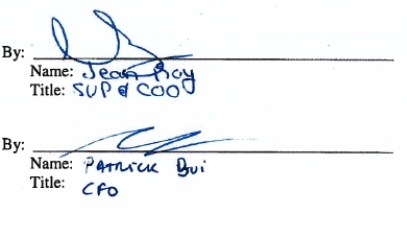 By:
Name: Jean Roy
Title: SVP & COO
By:
Name: PATRICK Bui
Title: CFO